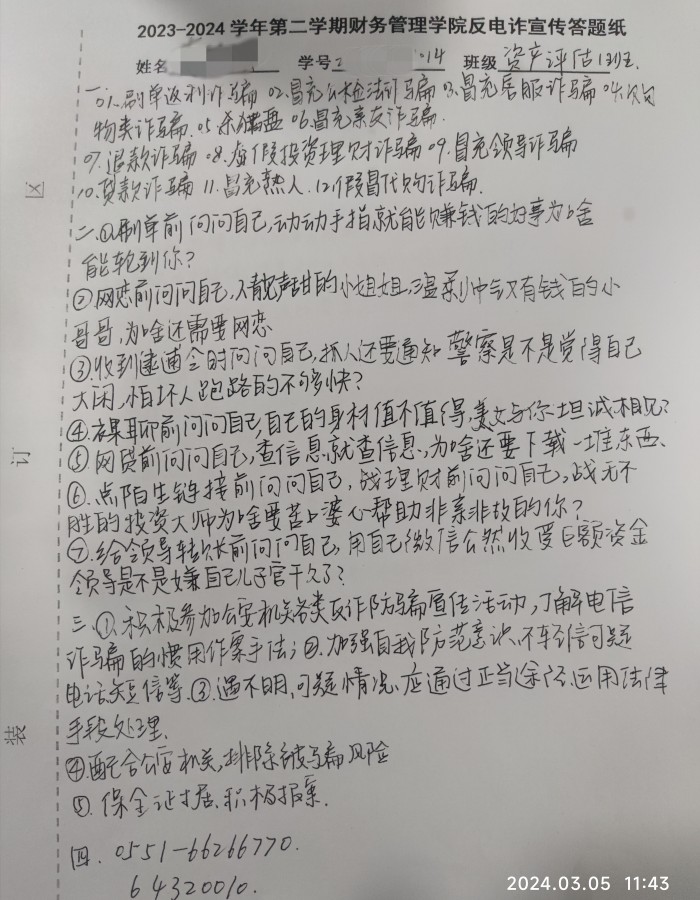 2023-2024 学年第二学期财务管理学院反电诈宣传答题纸
姓名 学号 014 班级 资产评估1班
一.01.刷单返利诈骗 02.冒充公检法诈骗 03.冒充客服诈骗 04.
物类诈骗.05.杀猪盘 06.冒充亲友诈骗.
07.退款诈骗 08.虚假投资理财诈骗 09.冒充领导诈骗
10.贷款诈骗 11.冒充熟人.12.假冒代购诈骗.
二.①刷单前问问自己,动动手指就能赚钱的好事为啥
能轮到你?
②网恋前问问自己,人靓声甜的小姐姐,温柔帅气又有钱的小
哥哥,为啥还需要网恋
③收到逮通令时问问自己,抓人还要通知 警察是不是觉得自己
太闲,怕坏人跑路的不够快?
④裸聊前问问自己,自己的身材值不值得美女与你坦诚相见?
⑤网贷前问问自己,查信息就查信息,为啥还要下载一堆东西、
⑥.点陌生链接前问问自己,战理财前问问自己,战无不
胜的投资大师为啥要苦口婆心帮助非亲非故的你?
⑦.给领导转账前问问自己,用自己微信公然收受巨额资金
领导是不是嫌自己儿子官干久了?
三.①.积极参加公安机关各类反诈防骗宣传活动,了解电信
诈骗的惯用作案手法;②.加强自我防范意识.不轻信可疑
电话短信等.③.遇不明,可疑情况,应通过正当途径,运用法律
手段处理.
④.配合公安机关,排除被骗风险
⑤.保全证据、积极报案.
四. 0551-66266770.
64320010.
区
订
装
2024.03.05 11:43